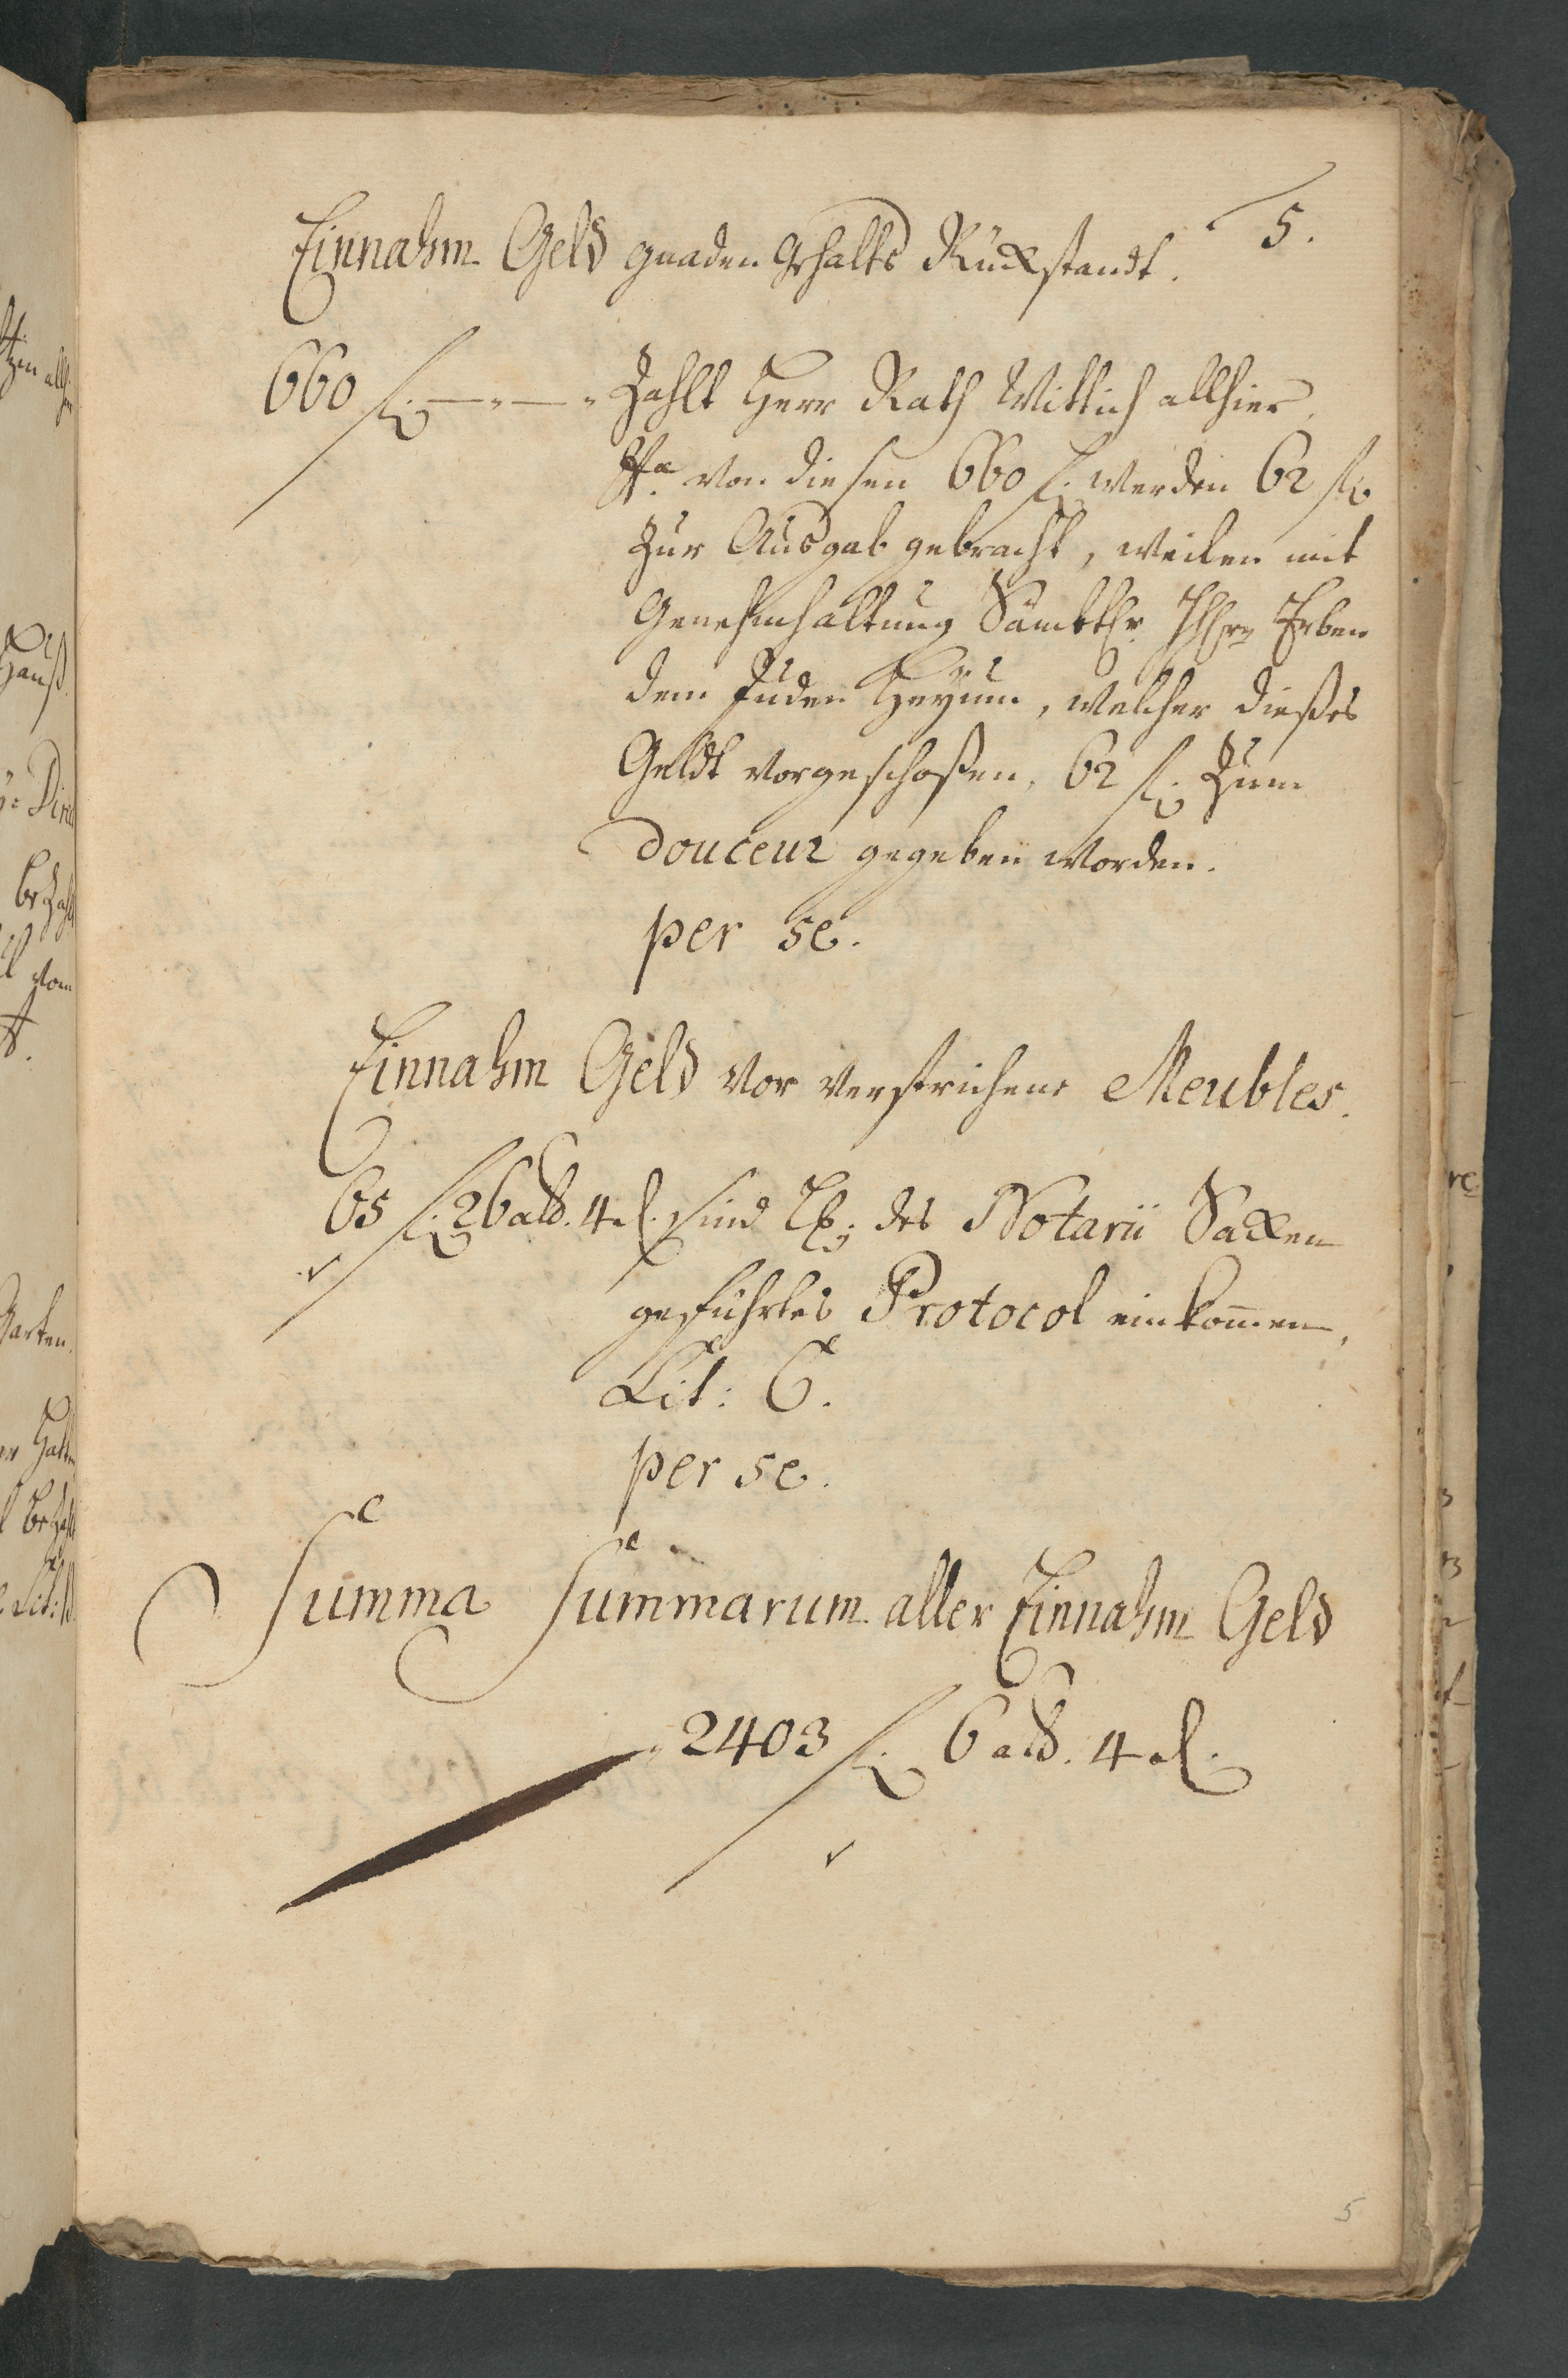 5.
Einnahm Geld gnaden Ghalts Rückstandt.
660 fl. — „ — „ Zahlt Herr Rath Wittich allhier.
NB von diesen 660 fl. werden 62 fl.
zur Ausgab gebracht, weilen mit
Genehmhaltung Sämbtl. Erben
dem Juden Heyum, welcher dießes
Geldt vorgeschoßen, 62 fl. zum
douceur gegeben worden.
per se.
Einnahm Geld vor verstrichene Meubles.
65 fl. 26 alb. 4 d. sind des Notarii Sacken
geführtes Protocol einkommen,
Lit: C.
per se.
Summa Summarum aller Einnahm Geld
2403 fl. 6 alb. 4 d.
5